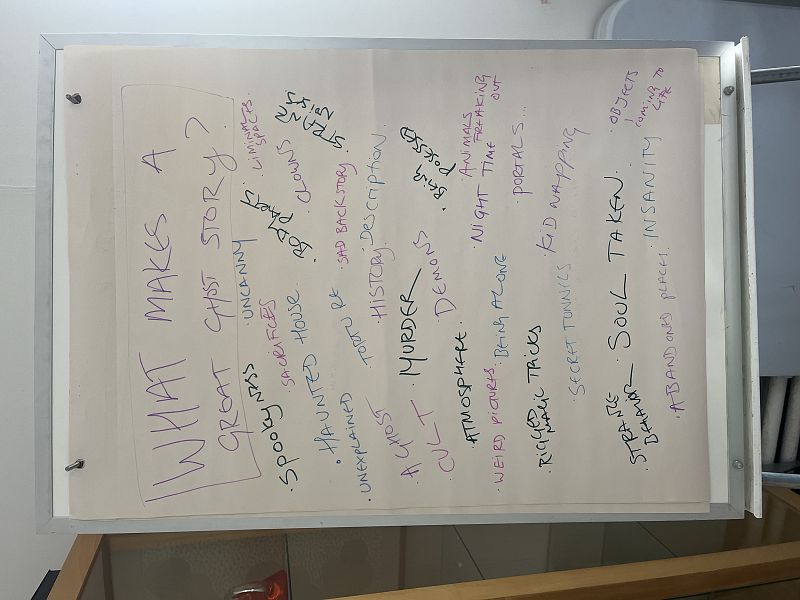 WHAT MAKES A
GREAT GHOST STORY?
· SPOOKYNESS · UNCANNY · LIMINAL SPACES.
· SACRIFICES · BODY PARTS · CLOWNS · STRANGE NOISES
· HAUNTED HOUSE · SAD BACKSTORY
· UNEXPLAINED · TORTURE · HISTORY · DESCRIPTION.
· A GHOST
· CULT · MURDER · DEMONS · BEING POSESSED
· ATMOSPHERE. · NIGHT TIME · ANIMALS FREAKING OUT
· WEIRD PICTURES. · BEING ALONE · PORTALS...
· RIGGED MAGIC TRICKS · KIDNAPPING
· SECRET TUNNELS
· STRANGE BEHAVIOR · SOUL TAKEN. · OBJECTS COMING TO LIFE
· ABANDONED PLACES. · INSANITY